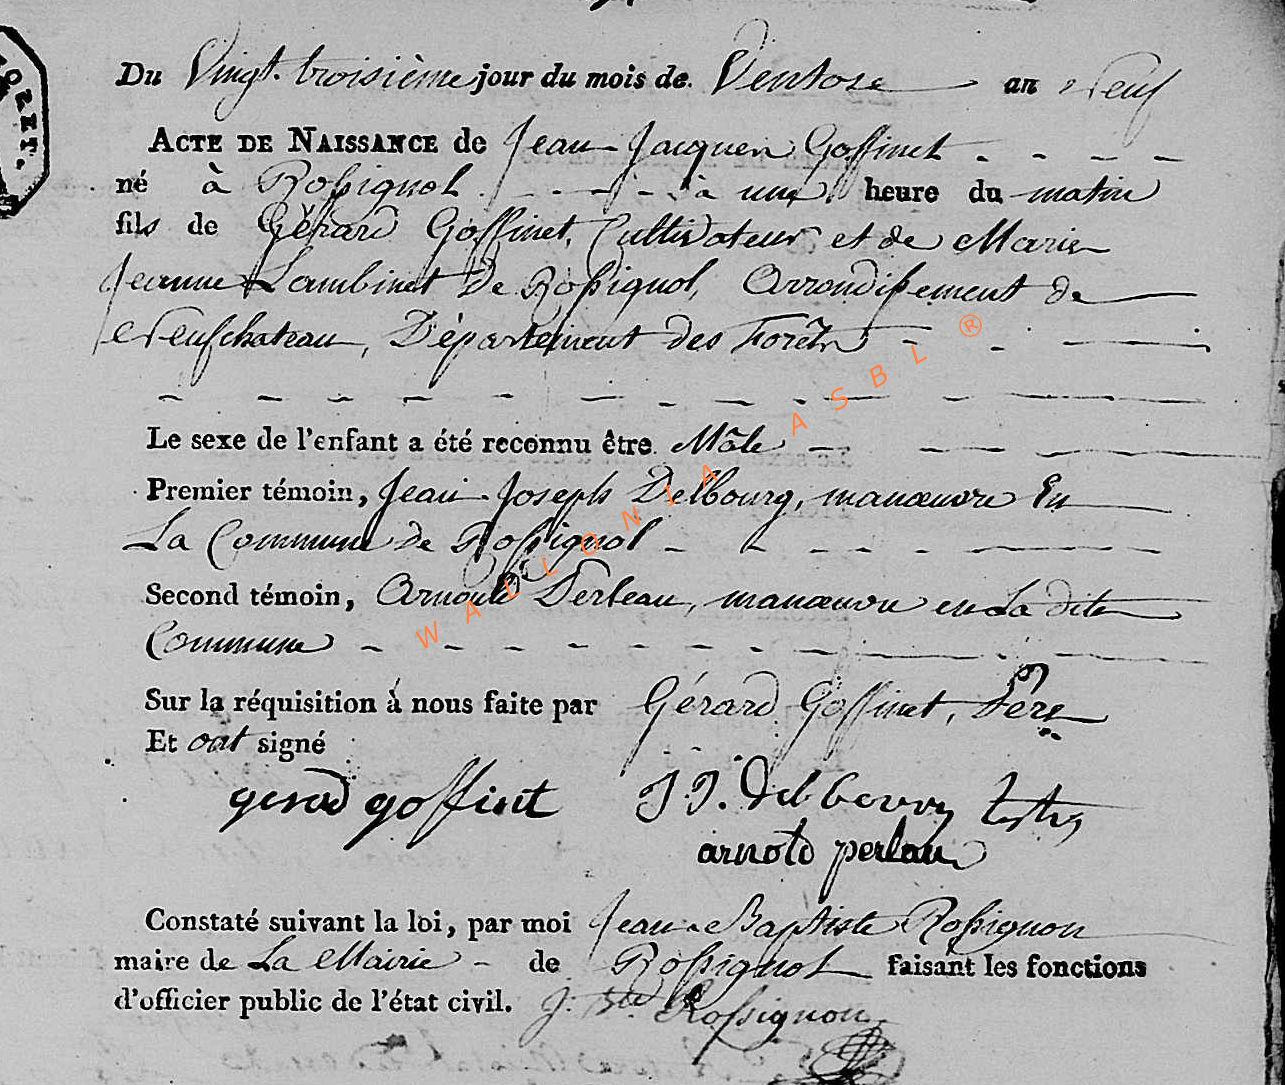 FORET.
Du Vingt-troisième jour du mois de Ventose an Neuf
ACTE DE NAISSANCE de Jean-Jacques Goffinet
né à Rossignol à une heure du matin
fils de Gérard Goffinet, Cultivateur et de Marie
Jeanne Lambinet de Rossignol, Arrondissement de
Neufchateau, Département des Forêts
Le sexe de l'enfant a été reconnu être Mâle
Premier témoin, Jean-Joseph Delbourg, manœuvre En
La Commune de Rossignol
Second témoin, Arnould Perleau, manœuvre en La dite
Commune
Sur la réquisition à nous faite par Gérard Goffinet, Père
Et ont signé
gerard goffint J J. delbourg
arnold perlau
Constaté suivant la loi, par moi Jean-Baptiste Rossignon
maire de La Mairie de Rossignol faisant les fonctions
d'officier public de l'état civil. J. Bte Rossignon
WALLONIA ASBL ®